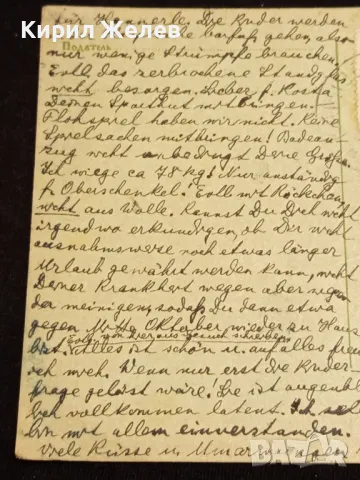 Кирил Желев
für Hannerle. Die Kinder werden
barfuß gehen, also
Податель
nur wenige Strümpfe brauchen.
Evtl. das zerbrochene Standglas
nicht besorgen. Lieber f. Kosta
Deinen mitbringen.
Flohspiel haben wir nicht. Keine
Spielsachen mitbringen! Badean-
zug nicht unbedingt Deine
Ich wiege ca 78 kg! Nur anständig
f. Oberschenkel! Evtl. mit Röckchen,
nicht aus Wolle. Kannst Du Dich nicht
irgendwo erkundigen, ob Dir nicht
ausnahmsweise noch etwas länger
Urlaub gewährt werden kann, nicht
Deiner Krankheit wegen aber wegen
der meinigen, sodaß Du dann etwa
gegen Oktober wieder zu Haus
Evtl. von hier aus Gesuch schreiben
bist. Alles ist schön u. auf alles freue
ich mich. Wenn nur erst die Kinder
frage gelöst wäre! Sie ist augenblick
lich vollkommen latent. Ich
bin mit allem einverstanden.
Viele Küsse u. Umarmungen
bazar.bg